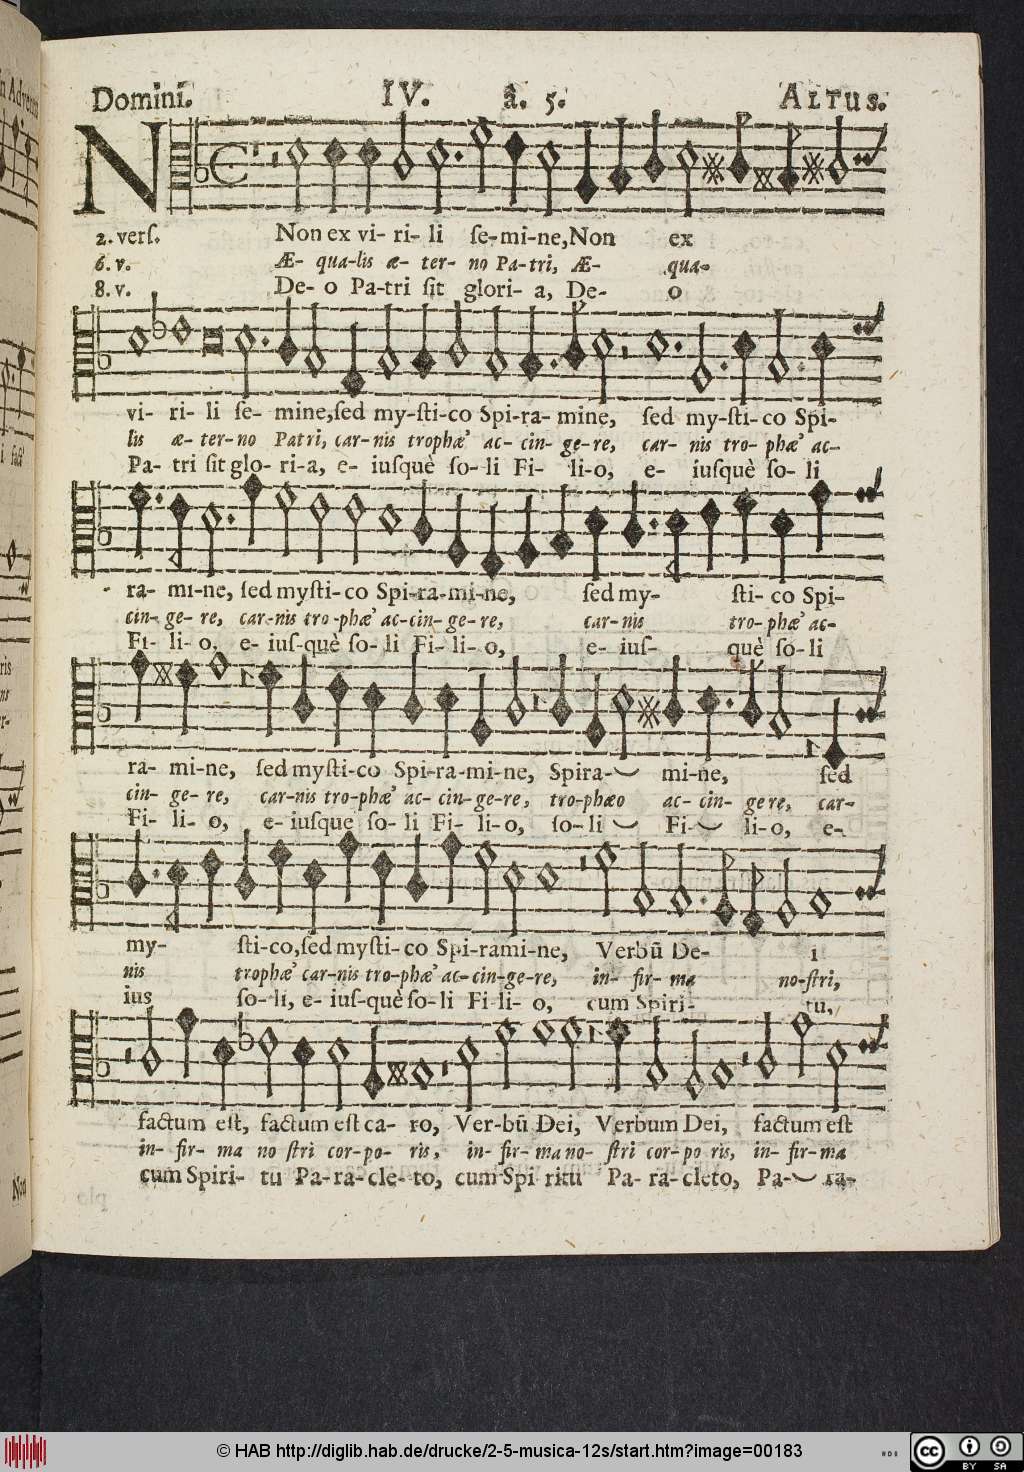 Domini.    IV.    â. 5.    ALTUS.
N
2. verſ.    Non ex vi- ri- li ſe-mi-ne,Non ex
6. v.    Æ- qua-lis æ- ter- no Pa-tri, Æ- qua-
8. v.    De- o Pa-tri ſit glori- a, De- o
vi- ri- li ſe- mine,ſed my-ſti-co Spi-ra- mine, ſed my-ſti-co Spi-
lis æ-ter-no Patri, car-nis trophæ' ac- cin- ge-re, car- nis tro-phæ' ac-
Pa- tri ſit glo- ri-a, e- iuſquè ſo-li Fi- li-o, e- iuſquè ſo- li
ra- mi-ne, ſed myſti-co Spi-ra-mi-ne, ſed my- ſti- co Spi-
cin- ge- re, car-nis tro-phæ' ac-cin-ge-re, car-nis tro- phæ' ac-
Fi- li- o, e- iuſ-què ſo-li Fi- li- o, e- iuſ- què ſo-li
ra- mi-ne, ſed myſti-co Spi-ra-mi-ne, Spira- mi-ne, ſed
cin- ge- re, car-nis tro-phæ' ac- cin-ge-re, tro-phæo ac- cin- ge re, car-
Fi- li- o, e- iuſque ſo- li Fi- li-o, ſo-li Fi- li-o, e-
my- ſti-co,ſed myſti-co Spi-rami-ne, Verbū De- i
nis trophæ' car-nis tro-phæ' ac-cin-ge-re, in- fir- ma no-ſtri,
ius ſo-li, e- iuſ-què ſo-li Fi-li- o, cum Spiri- tu,
factum eſt, factum eſt ca- ro, Ver-bū Dei, Verbum Dei, factum eſt
in- fir- ma no ſtri cor-po- ris, in- fir-ma no- ſtri cor-po ris, in- fir-ma
cum Spiri- tu Pa-ra-cle-to, cum Spi ritu Pa- ra-cleto, Pa- ra-
© HAB http://diglib.hab.de/drucke/2-5-musica-12s/start.htm?image=00183
cc BY SA